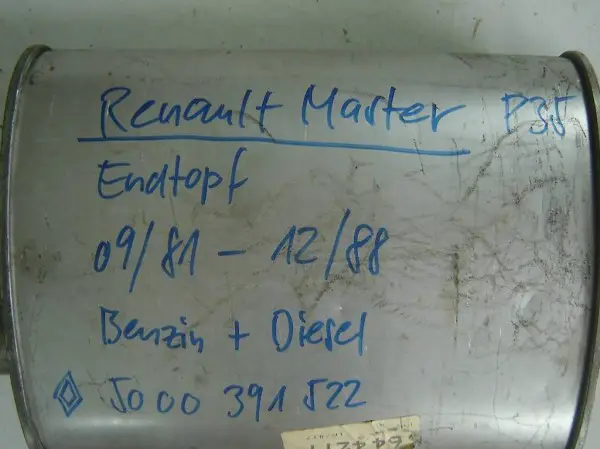 Renault Master P35
Endtopf
09/81 - 12/88
Benzin + Diesel
5000 391 522